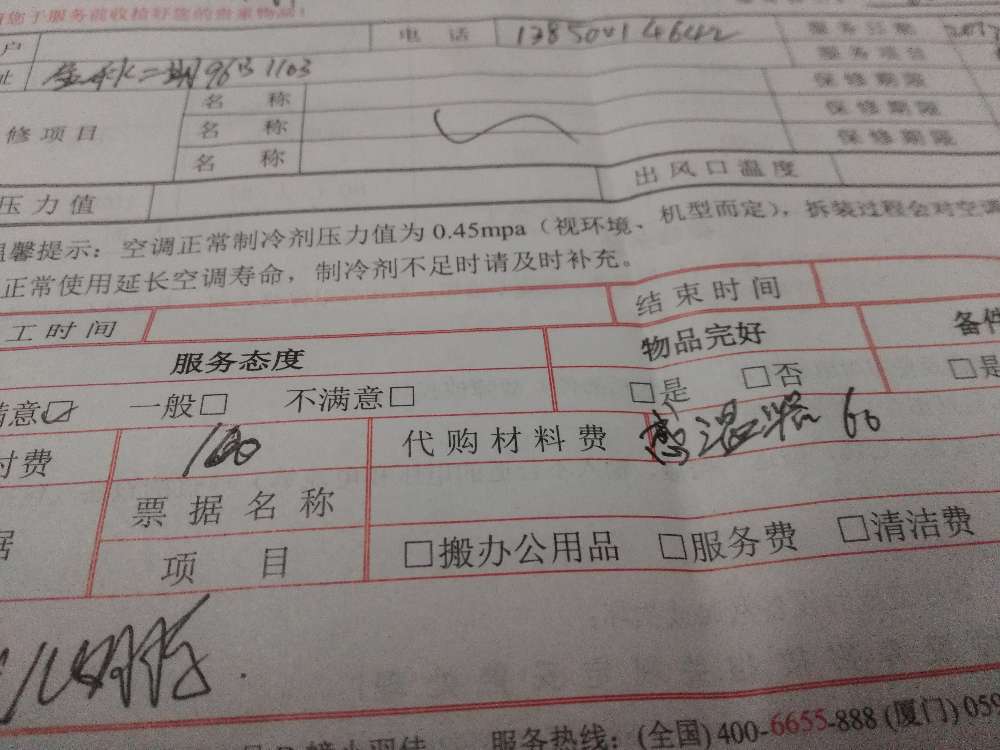 您于服务前收拾好您的贵重物品!
户 电话 13850014642 服务日期
址 金秋二期96B1103 服务项目
修项目 名称 保修期限
名称 保修期限
名称 保修期限
压力值 出风口温度
温馨提示：空调正常制冷剂压力值为0.45mpa（视环境、机型而定），拆装过程会对空调
正常使用延长空调寿命，制冷剂不足时请及时补充。
工时间 结束时间
服务态度 物品完好 备件
满意☑ 一般□ 不满意□ □是 □否 □是
付费 100 代购材料费 感温器 60
据 票据名称
项目 □搬办公用品 □服务费 □清洁费
服务热线：(全国) 400-6655-888 (厦门) 059